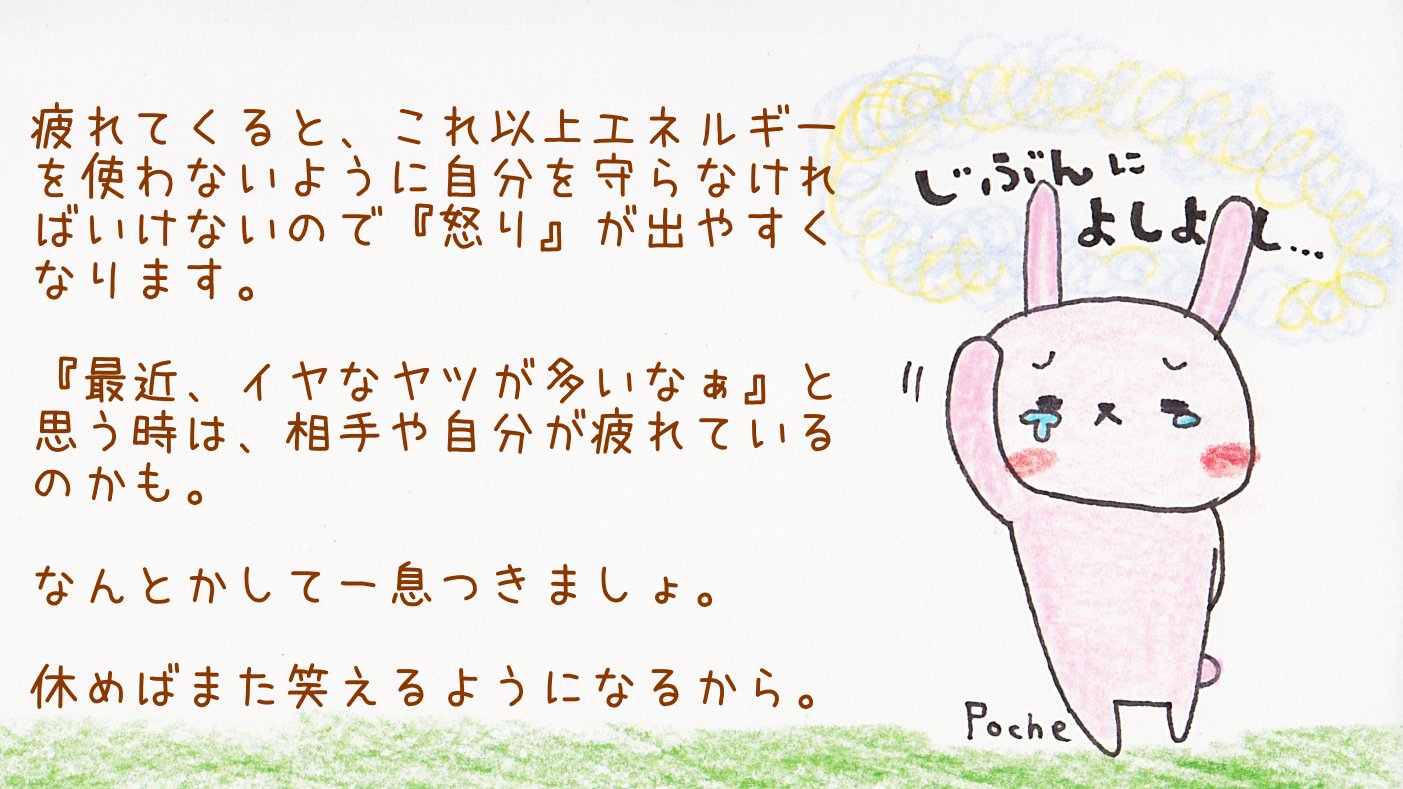 疲れてくると、これ以上エネルギー
を使わないように自分を守らなけれ
ばいけないので『怒り』が出やすく
なります。
『最近、イヤなヤツが多いなぁ』と
思う時は、相手や自分が疲れている
のかも。
なんとかして一息つきましょ。
休めばまた笑えるようになるから。
じぶんに
よしよし…
Poche